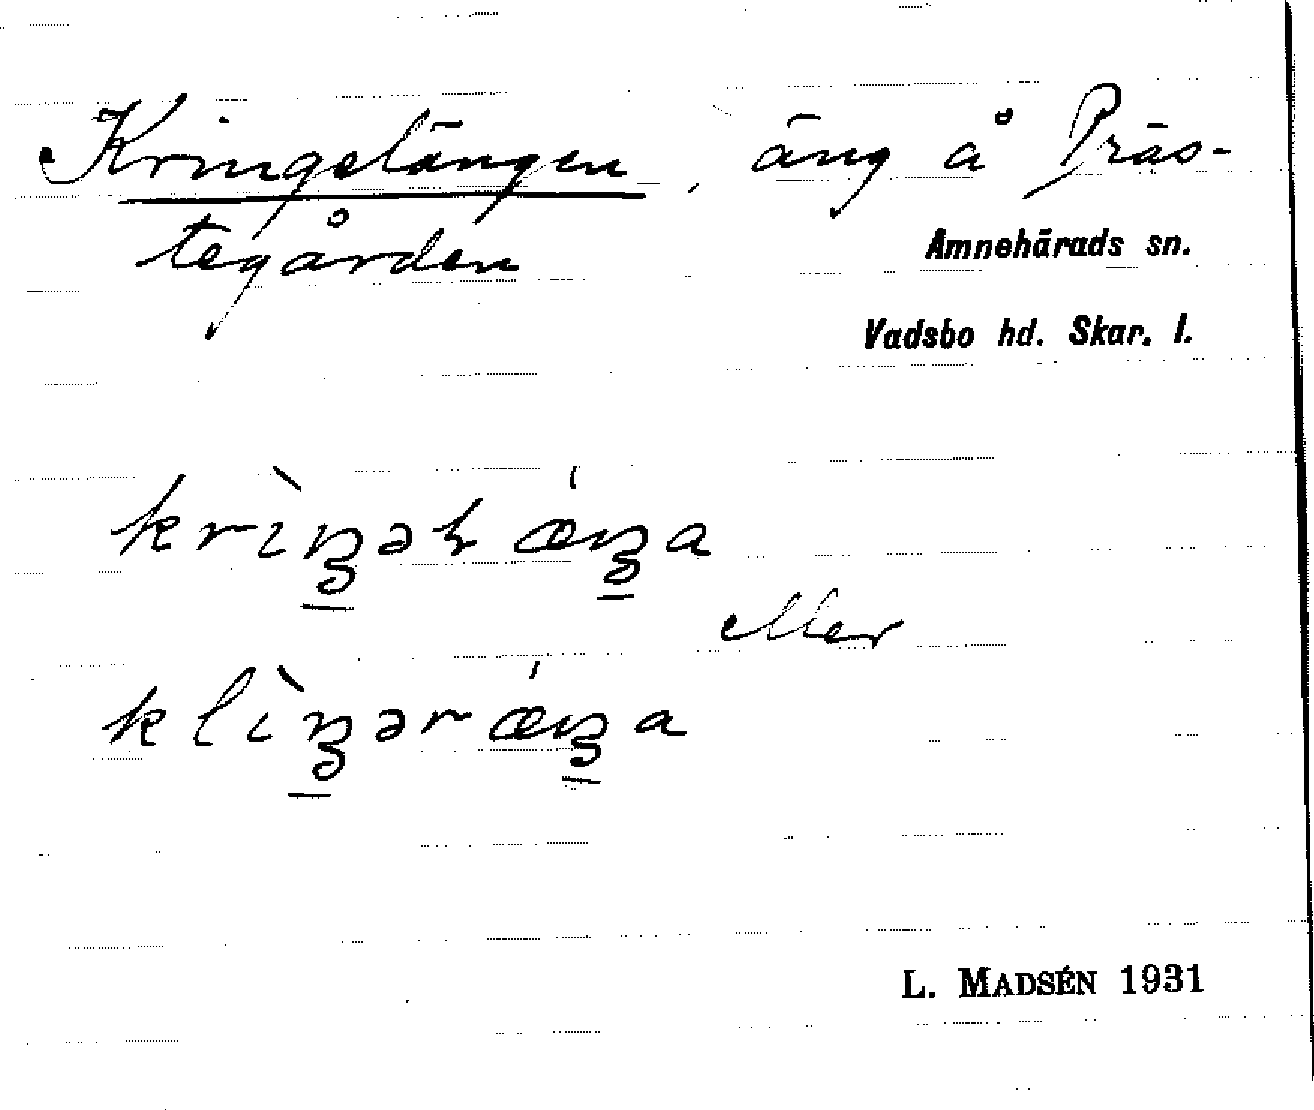 Kringelängen, äng å Präs-
tegården
Amnehärads sn.
Vadsbo hd. Skar. l.
krìŋəɫǽŋa
eller
klìŋərǽŋa
L. MADSÉN 1931